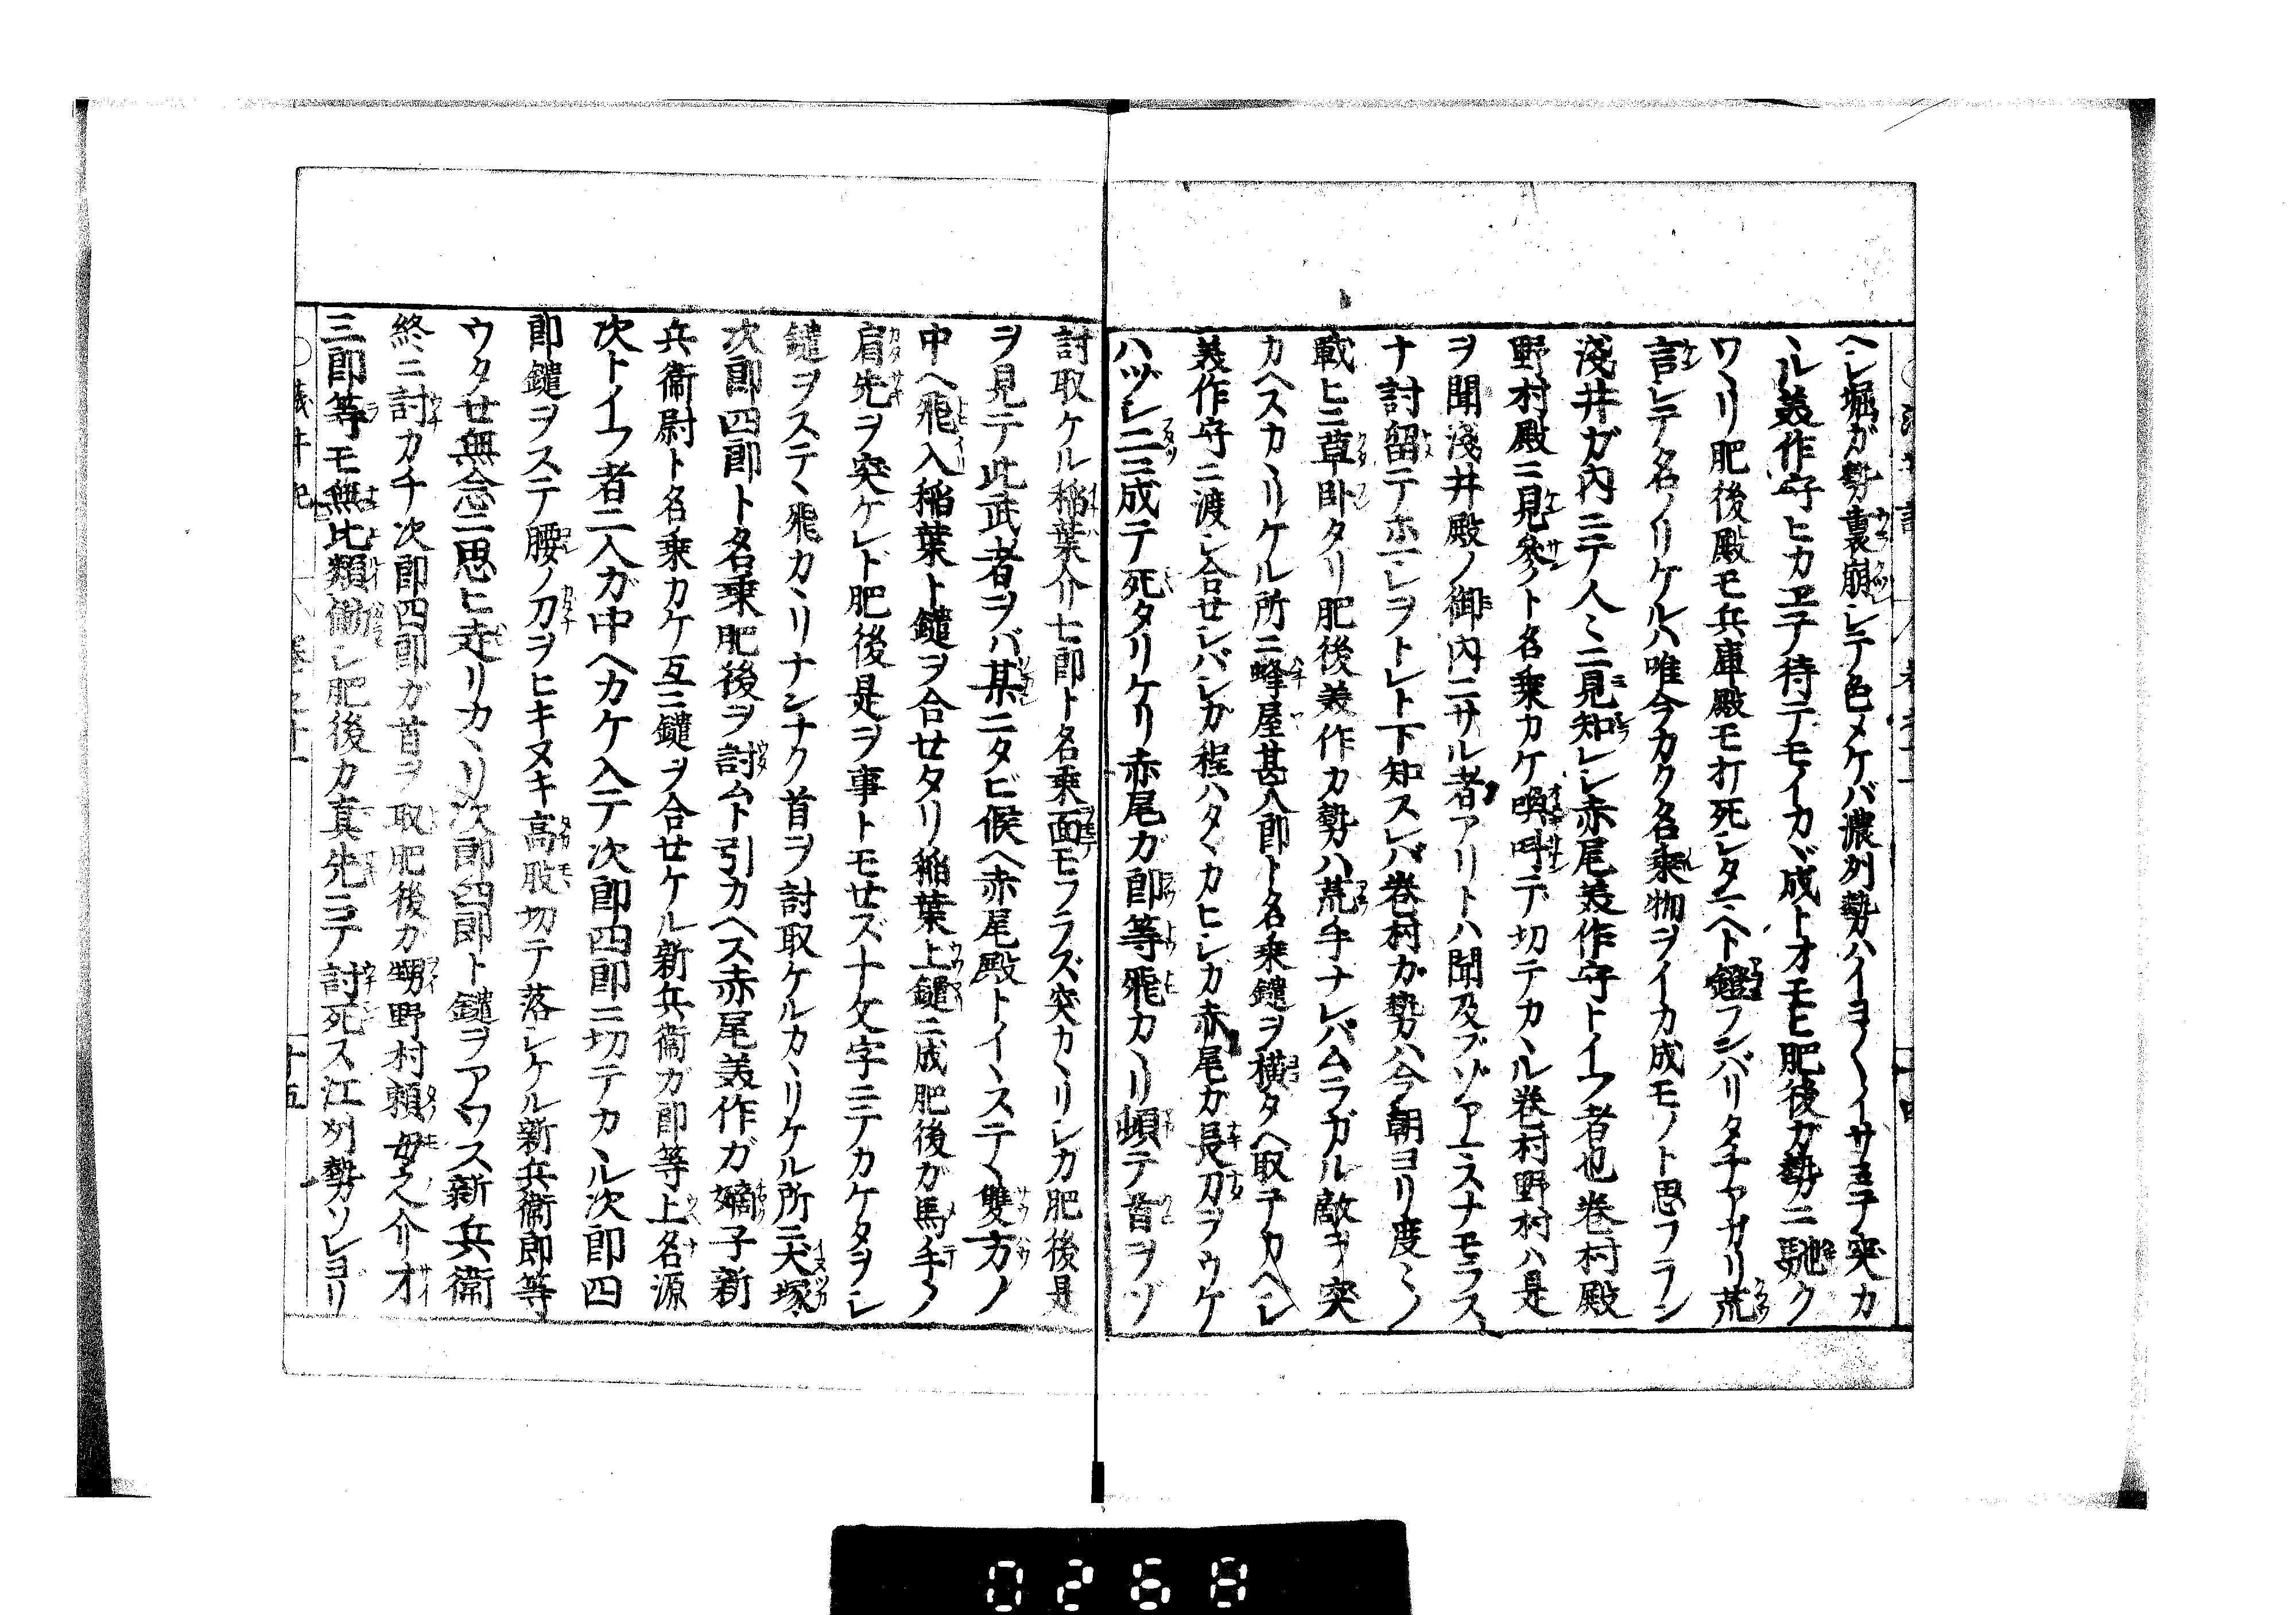 ヘシ堀ガ勢裏崩シテ色メケバ濃列勢ハイヨ〱イサヨ子突カ
ヽル美作守ヒカヱテ待テモイカヾ成トオモヒ肥後ガ勢ニ馳ク
ワヽリ肥後殿モ兵庫殿モ打死シタマヘト鐙フンバリタチアガリ荒
言シテ名ノリケルハ唯今カク名乗物ヲイカ成モノト思フラン
淺井ガ内ニテ人ミニ見知レシ赤尾美作守トイフ者也巻村殿
野村殿ニ見參ノト名乗カケ喚叫デ切テカヽル巻村野村ハ是
ヲ聞淺井殿ノ御内ニサル者アリトハ聞及ブゾアマスナモラス
ナ討留テホマレヲトレト下知スレバ巻村カ勢ハ今朝ヨリ度ミノ
戰ヒニ草臥タリ肥後美作カ勢ハ荒手ナレバムラガル敵ヲ突
カヘスカヽルケル所ニ蜂屋甚八郎ト名乗鑓ヲ横タヘ取テカヘシ
美作守ニ渡シ合セシバシガ程ハタヽカヒシカ赤尾カ長刀ヲウケ
ハヅシ二ニ成テ死タリケリ赤尾カ郎等飛カヽリ頓テ首ヲゾ
討取ケル稲葉介七郎ト名乗面モフラズ突カヽリシカ肥後是
ヲ見テ此武者ヲバ某ニタビ候ヘ赤尾殿トイヽステヽ雙方ノ
中ヘ飛入稲葉ト鑓ヲ合セタリ稲葉上鑓ニ成肥後ガ馬手ノ
肩先ヲ突ケレド肥後是ヲ事トモセズ十文字ニテカケタヲシ
鑓ヲステヽ飛カヽリナンナク首ヲ討取ケルカヽリケル所ニ犬塚
次郎四郎ト名乗肥後ヲ討ムト引カヘス赤尾美作ガ嫡子新
兵衞尉ト名乗カケ互ニ鑓ヲ合セケル新兵衞ガ郎等上名源
次トイフ者二人ガ中ヘカケ入テ次郎四郎ニ切テカヽル次郎四
郎鑓ヲステ腰ノ刀ヲヒキヌキ高股切テ落シケル新兵衞郎等
ウタセ無念ニ思ヒ走リカヽリ次郎四郎ト鑓ヲアワス新兵衞
終ニ討カチ次郎四郎ガ首ヲ取肥後カ甥野村頼母之介才
三郎等モ無比類働シ肥後カ真先ニテ討死ス江列勢ソレヨリ
十五
0268